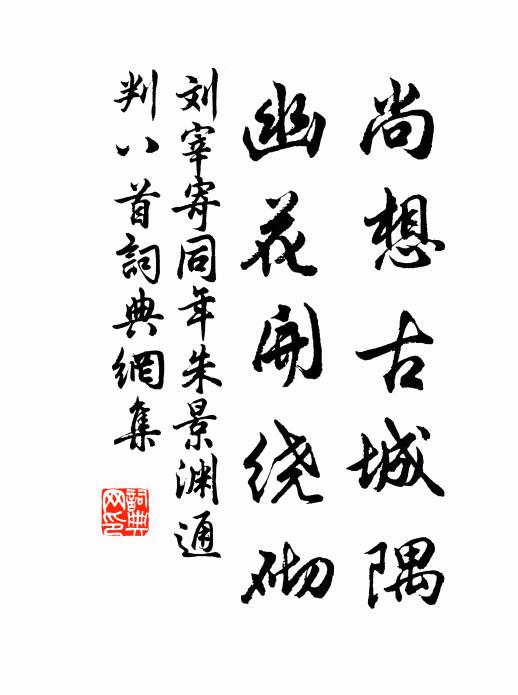 尚想古城隅
幽花開绕砌
刘宰寄同年朱景渊通
判八首詞典網集
詞典
网印